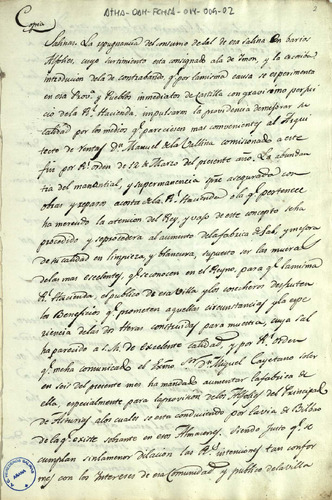 ATHA-DAH-FCHCA-014-009-02
2
Copia
Salinas. La repugnancia del consumo de sal de esa Salina en barios
Alfolies, cuyo surtimiento esta consignado a la de Imon, y la
introducción de la de contrabando, q.e por la misma causa se experimenta
en esa Prov.a y Pueblos inmediatos de Castilla con gravisimo perjui
cio de la R.l Hacienda, impulsaron la providencia de mejorar su
calidad por los medios q.e pareciesen mas convenientes al Arqui
tecto de rentas D.n Manuel de la Ballina comisionado a este
fin por R.l orden de 12 de Marzo del presente ano. La abundan
cia del manantial, y su permanencia asegurada con
obras y reparos acosta de la R.l Hacienda a la q.e pertenece
ha merecido la atencion del Rey, y vajo de este concepto se ha
procedido y se procederá al aumento de la fabrica de Sal, y mejora
de su calidad en limpieza, y blancura, supuesto ser las mueras
de las mas excelentes q.e se conocen en el Reyno, para q.e la misma
R.l Hacienda, el publico de esa Villa y los cosecheros disfruten
los Beneficios q.e prometen aquellas circunstancias y la expe
riencia de las dos Heras construidas para muestra, cuya sal
ha parecido a S.M. de excelente calidad, y por R.l orden
q.e me ha comunicado el Exmo S.or D.n Miguel Cayetano soler
en seis del presente mes ha mandado aumentar la fabrica de
ella, especialmente para provision de los Alfolies del Principado
de Asturias, a los cuales se esta conduciendo por la via de Bilbao
de la q.e existe sobrante en esos Almacenes, siendo justo q.e se
cumplan sin la menor dilacion las R.s intenciones tan confor
mes con los Intereses de esa Comunidad y publico de la Villa